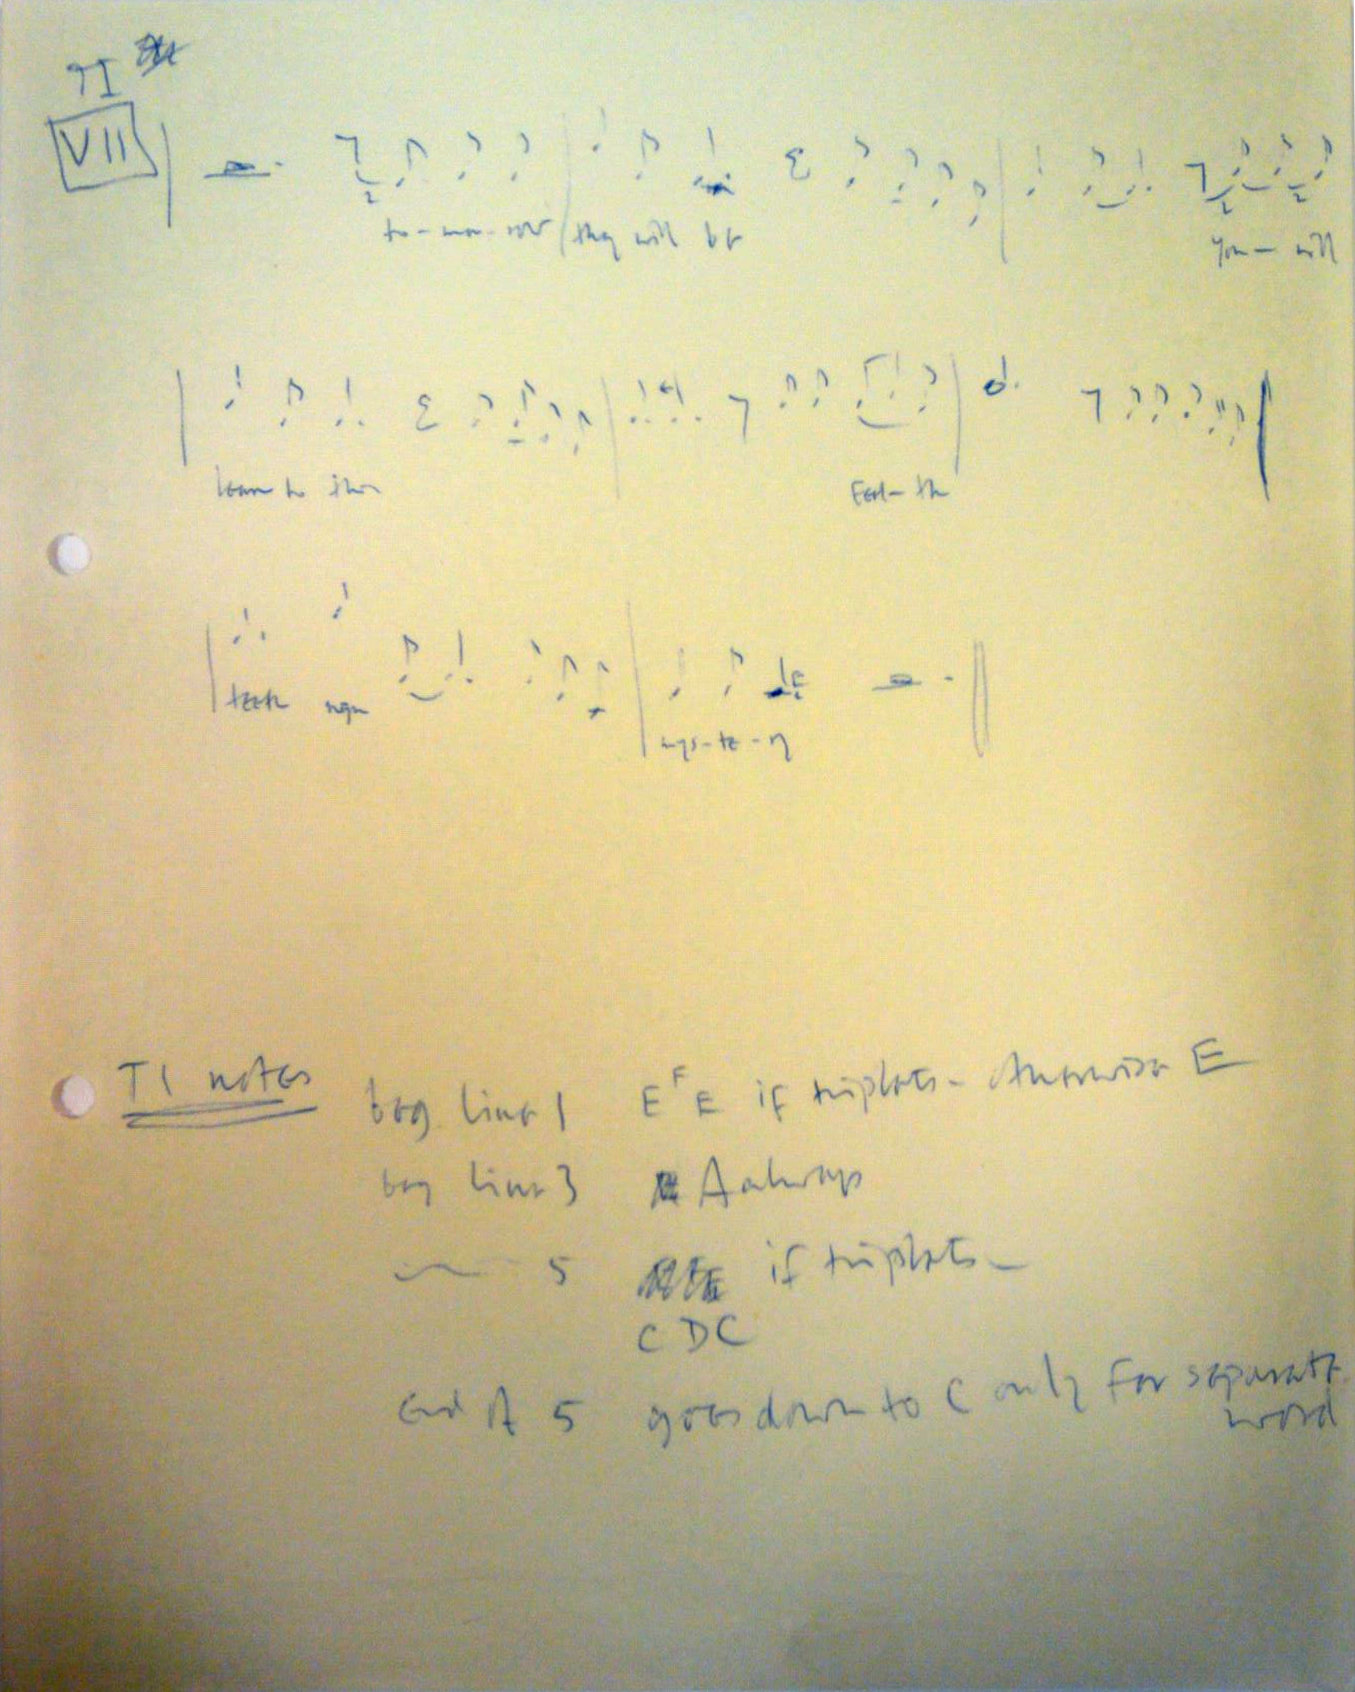 TI
VII
to-mor-row they will be
you- will
learn to
Feel- the
teeth
mys-te-ry
T1 notes beg. line 1 E F E if triplets- otherwise E
beg line 3 A always
5 if triplets-
C D C
End of 5 goes down to C only for separate
word